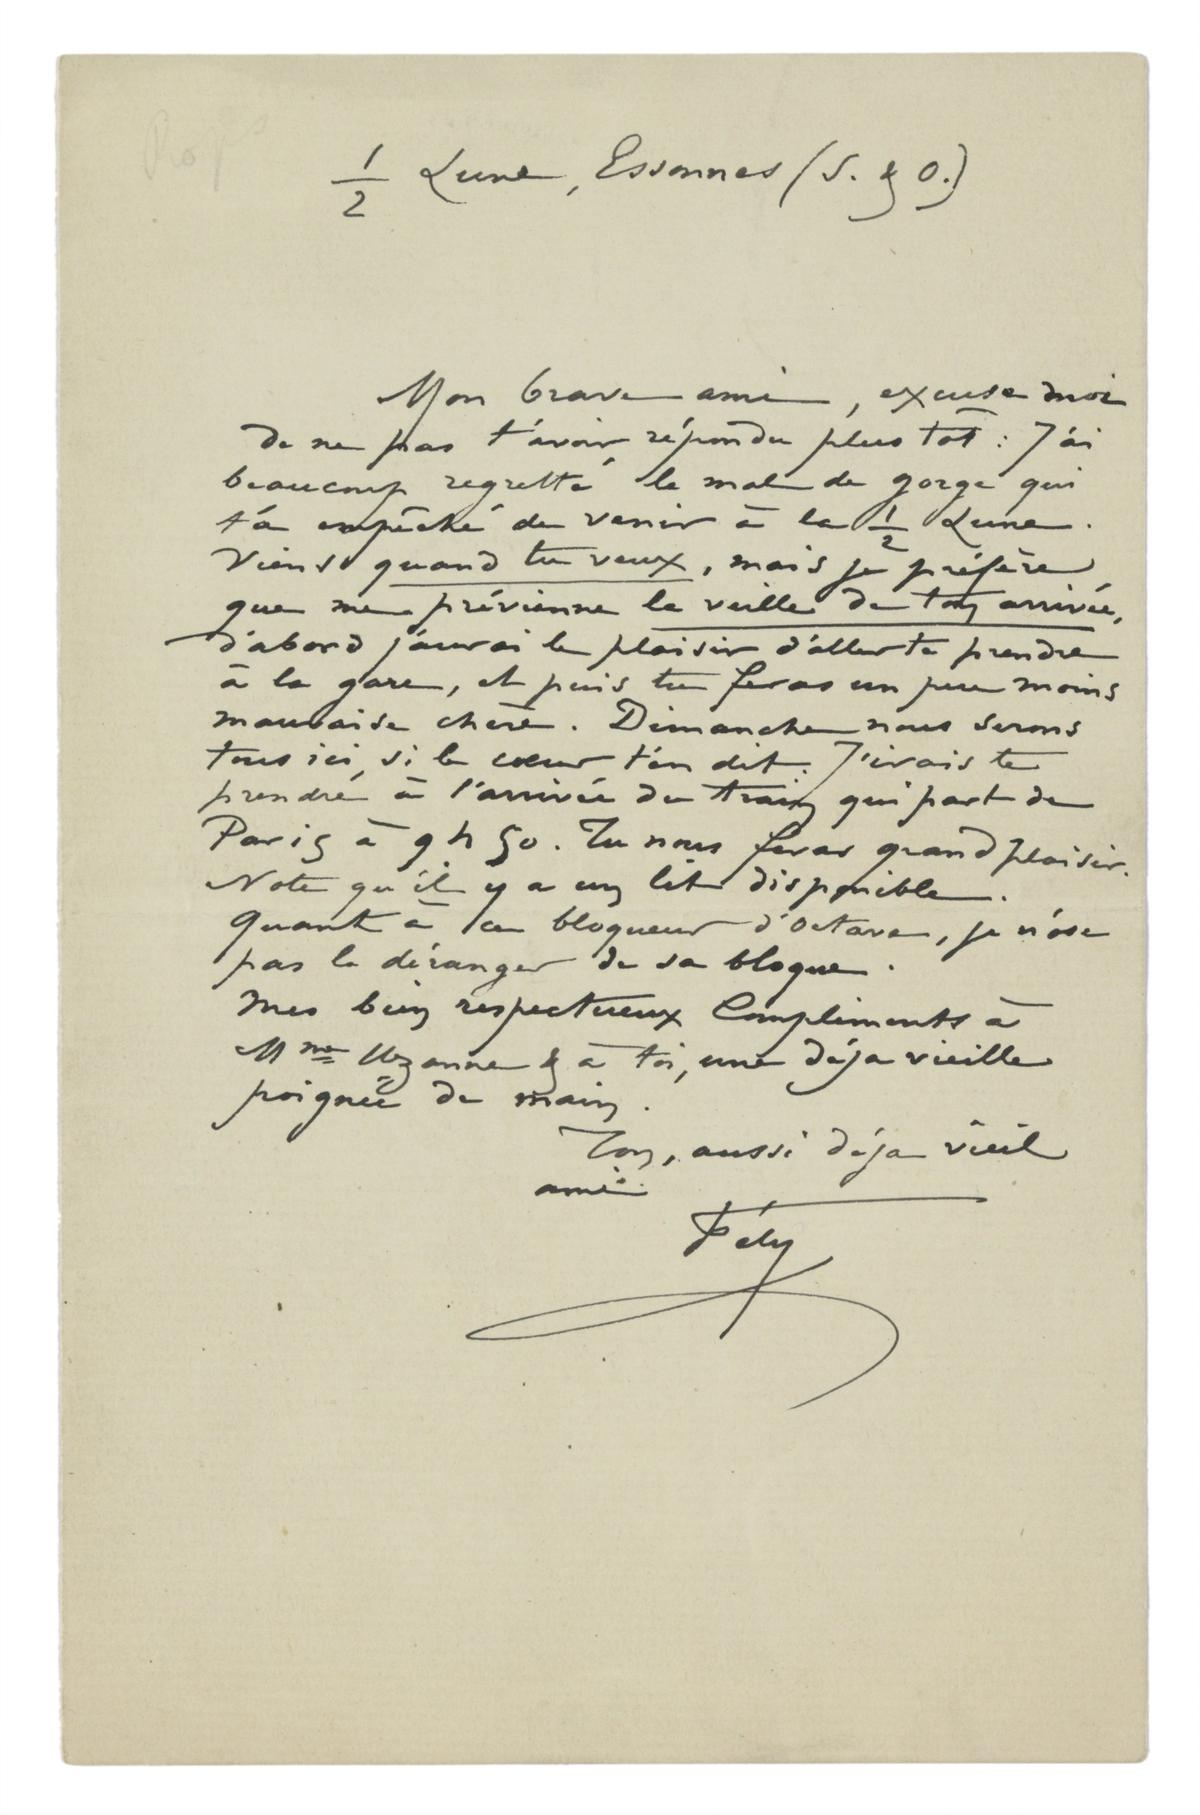 Rops
1/2 Lune, Essonnes (S. & O.)
Mon brave ami, excuse moi
de ne pas t'avoir répondu plus tôt : J'ai
beaucoup regretté le mal de gorge qui
t'a empêché de venir à la 1/2 Lune.
Viens quand tu veux, mais je préfère
que me prévienne la veille de ton arrivée,
d'abord j'aurai le plaisir d'aller te prendre
à la gare, et puis tu feras un peu moins
mauvaise chère. Dimanche nous serons
tous ici, si le cœur t'en dit. J'irais te
prendre à l'arrivée du train qui part de
Paris à 9 h 50. Tu nous feras grand plaisir.
Note qu'il y a un lit disponible.
Quant à ce bloqueur d'Octave, je n'ose
pas le déranger de sa bloque.
Mes bien respectueux Compliments à
Mme Uzanne & à toi, une déja vieille
poignée de main.
Ton, aussi déja vieil
ami.
Fély